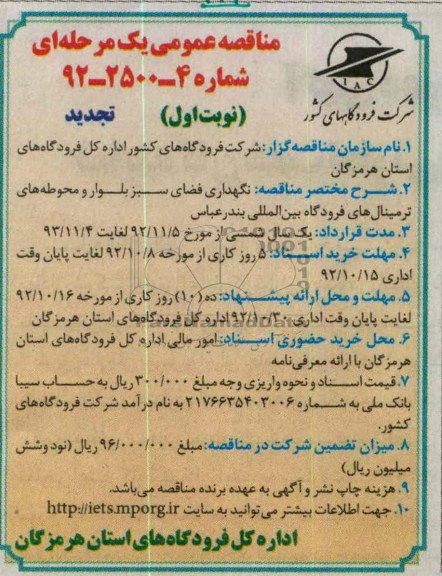 مناقصه عمومی یک مرحله‌ای
شماره ۴-۲۵۰۰-۹۲
(نوبت اول) تجدید
IAC
شرکت فرودگاههای کشور
۱. نام سازمان مناقصه‌گزار: شرکت فرودگاه‌های کشور اداره کل فرودگاه‌های
استان هرمزگان
۲. شرح مختصر مناقصه: نگهداری فضای سبز بلوار و محوطه‌های
ترمینال‌های فرودگاه بین‌المللی بندرعباس
۳. مدت قرارداد: یک سال شمسی از مورخ ۹۲/۱۱/۵ لغایت ۹۳/۱۱/۴
۴. مهلت خرید اسناد: ۵ روز کاری از مورخه ۹۲/۱۰/۸ لغایت پایان وقت
اداری ۹۲/۱۰/۱۵
۵. مهلت و محل ارائه پیشنهاد: ده (۱۰) روز کاری از مورخه ۹۲/۱۰/۱۶
لغایت پایان وقت اداری ۹۲/۱۰/۳۰ اداره کل فرودگاه‌های استان هرمزگان
۶. محل خرید حضوری اسناد: امور مالی اداره کل فرودگاه‌های استان
هرمزگان با ارائه معرفی‌نامه
۷. قیمت اسناد و نحوه واریزی وجه مبلغ ۳۰۰/۰۰۰ ریال به حساب سیبا
بانک ملی به شماره ۲۱۷۶۶۳۵۴۰۳۰۰۶ به نام درآمد شرکت فرودگاه‌های
کشور.
۸. میزان تضمین شرکت در مناقصه: مبلغ ۹۶/۰۰۰/۰۰۰ ریال (نود و شش
میلیون ریال)
۹. هزینه چاپ نشر و آگهی به عهده برنده مناقصه می‌باشد.
۱۰. جهت اطلاعات بیشتر می‌توانید به سایت http://iets.mporg.ir
اداره کل فرودگاه‌های استان هرمزگان